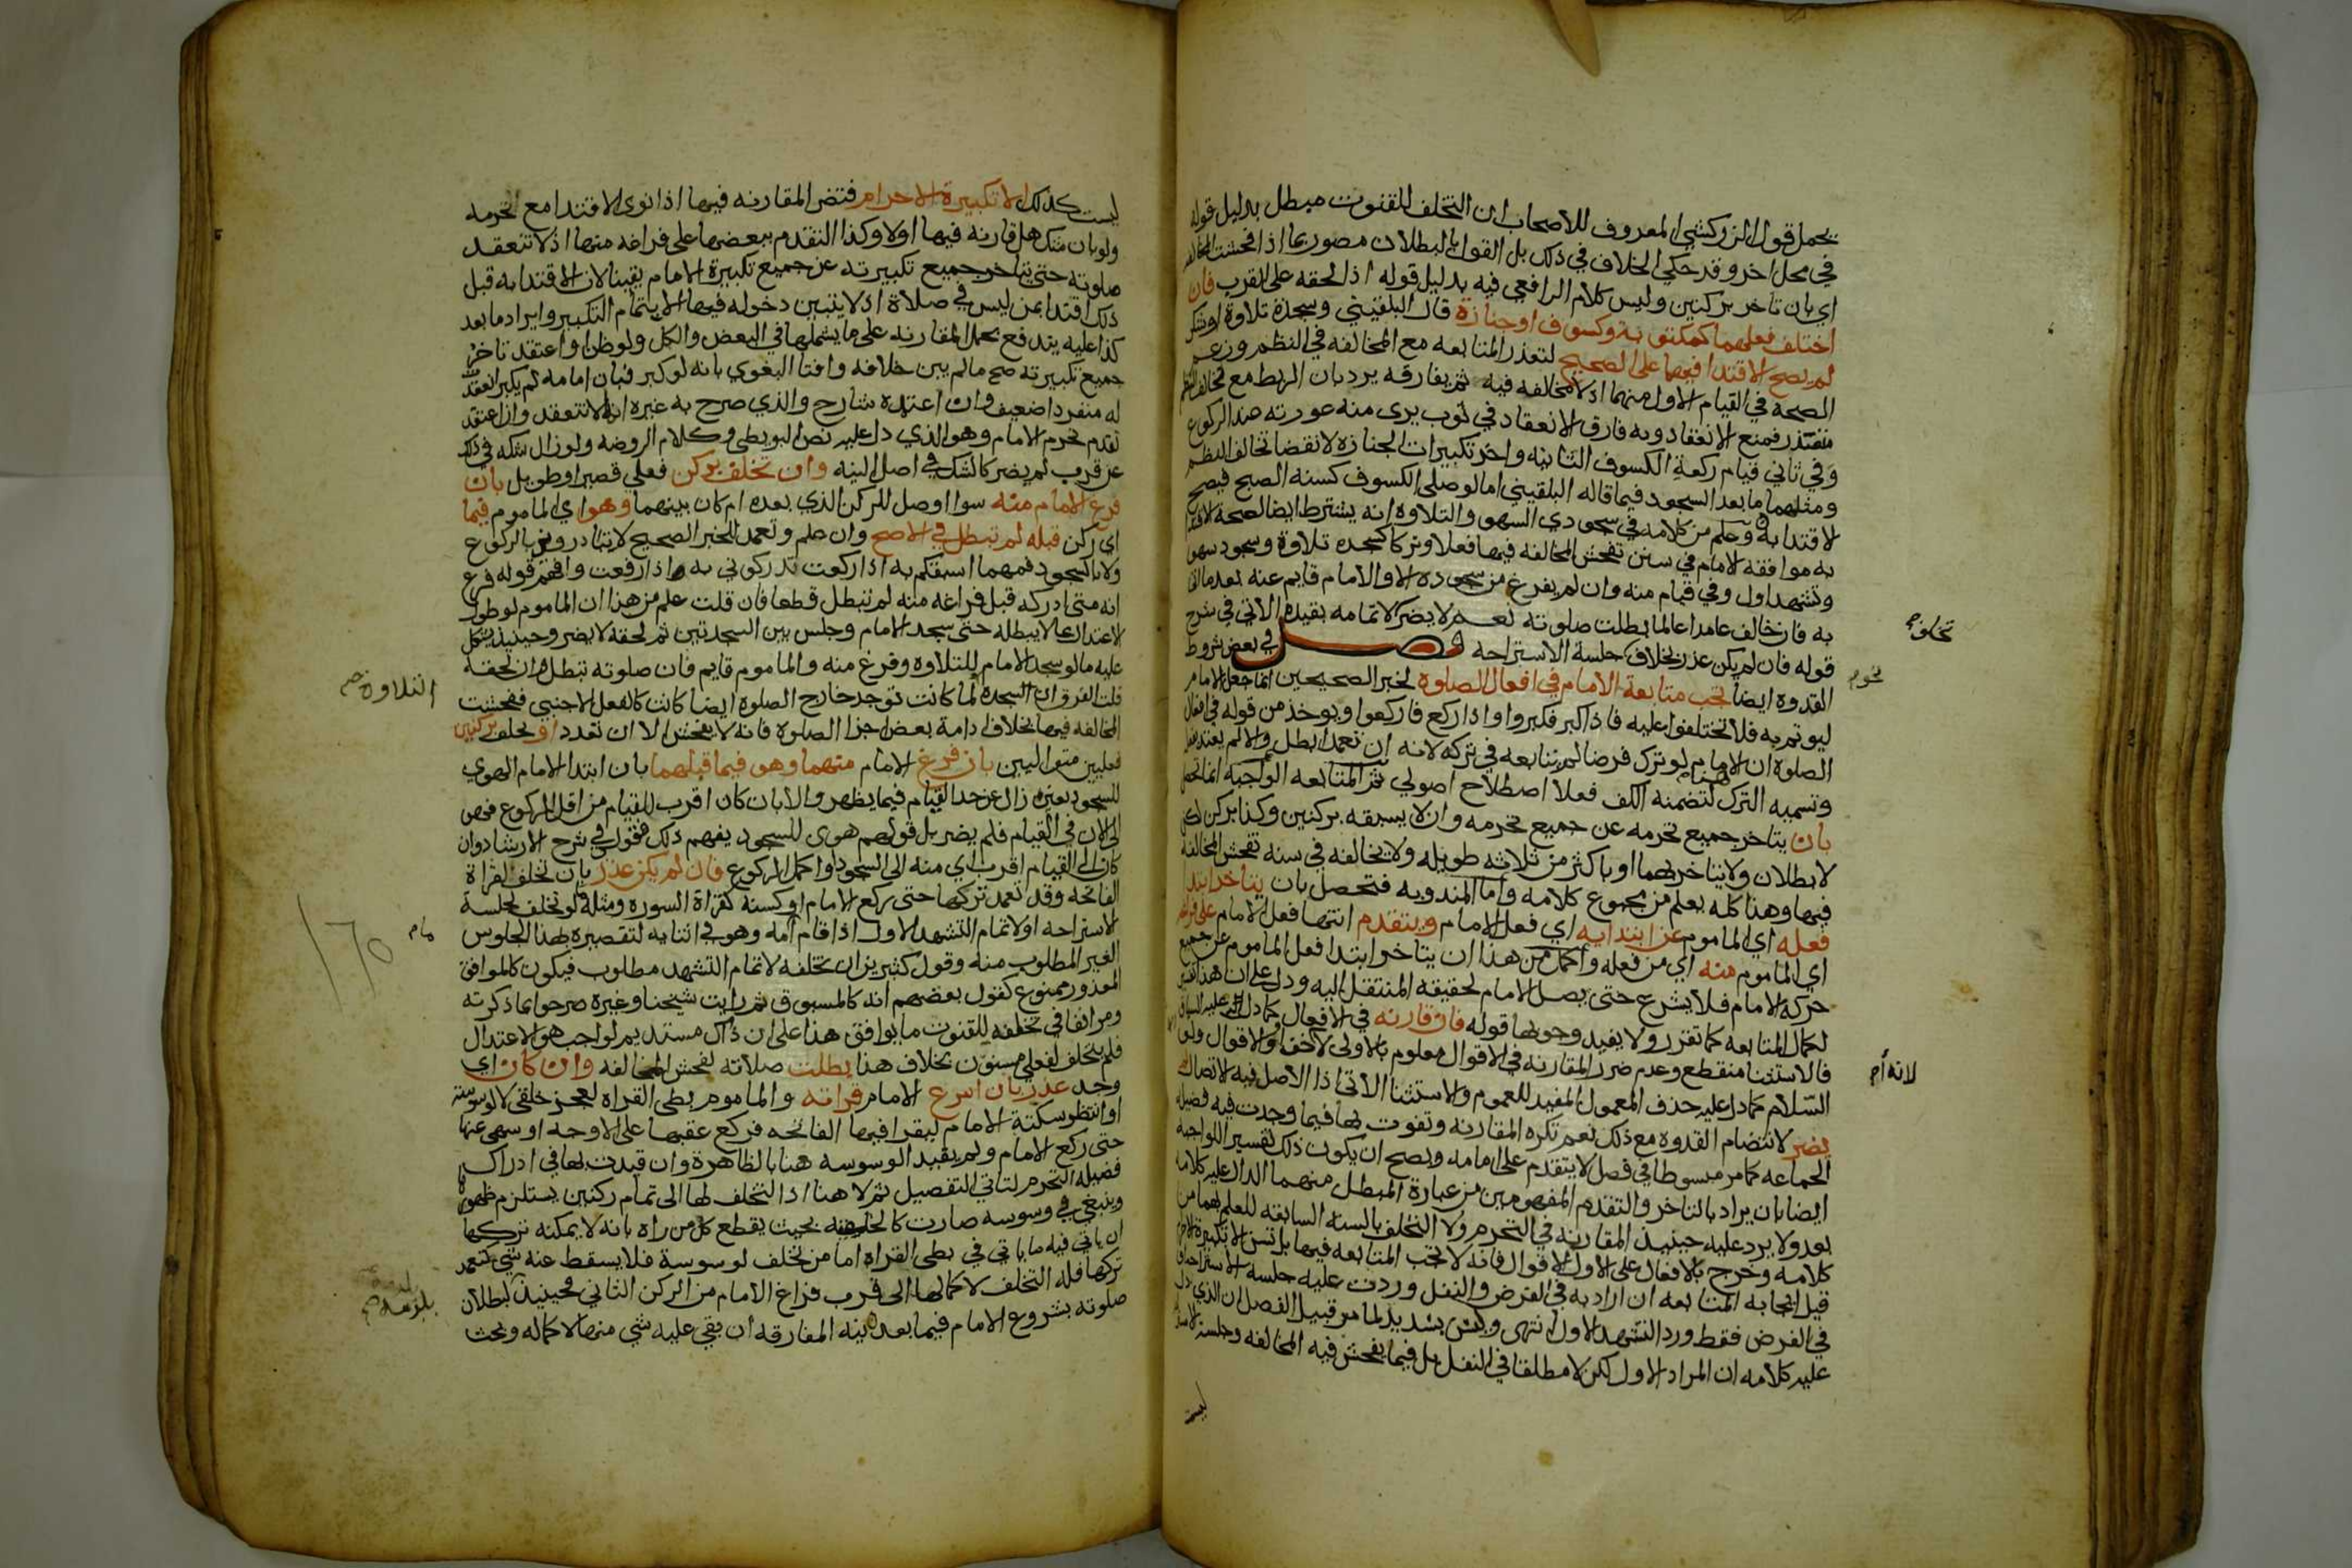 يحمل قول الزركشي المعروف للاصحاب ان التخلف للقنوت مبطل بدليل قوله
في محل اخر وقد حكي الخلاف في ذلك بل القول بالبطلان مصور بما اذا فحشت المخالفه
اي بان تاخر بركنين وليس كلام الرافعي فيه بدليل قوله اذا لحقه على القرب فان
اختلف فعلهما كمكتوبة وكسوف او جنازة قال البلقيني وسجدة تلاوة او شكر
لم يصح الاقتدا فيهما على الصحيح لتعذر المتابعه مع المخالفه في النظم وزعم
الصحه في القيام الاول منهما اذ لا مخالفه فيه ثم يفارقه يرد بان الربط مع تخالف النظم
متعذر فمنع الانعقاد وبه فارق الانعقاد في ثوب يرى منه عورته عند الركوع
وفي ثاني قيام ركعة الكسوف الثانيه واخر تكبيرات الجنازه لانقضا تخالف النظم
ومثلهما ما بعد السجود فيما قاله البلقيني اما لو صلى الكسوف كسنه الصبح فيصح
الاقتدا به وعلم من كلامه في سجودي السهو والتلاوه انه يشترط ايضا لصحة الاقتدا
به موافقه الامام في سنن تفحش المخالفه فيها فعلا وتركا كسجده تلاوة وسجود سهو
وتشهد اول وفي قيام منه وان لم يفرغ من سجوده الا والامام قايم عنه بعد ما اتى
به فان خالف عامدا عالما بطلت صلوته نعم لا يضر لاتمامه بقيده الاتي في شرح
قوله فان لم يكن عذر بخلاف جلسة الاستراحه فصل في بعض شروط
القدوه ايضا تجب متابعة الامام في افعال الصلوة لخبر الصحيحين انما جعل الامام
ليوتم به فلا تختلفوا عليه فاذا كبر فكبروا واذا ركع فاركعوا ويوخذ من قوله في افعال
الصلوة ان الامام لو ترك فرضا لم يتابعه في تركه لانه ان تعمد ابطل والا لم يعتد بفعله
وتسميه الترك لتضمنه الكف فعلا اصطلاح اصولي ثم المتابعه الواجبه انما تحصل
بان يتاخر جميع تحرمه عن جميع تحرمه وان لا يسبقه بركنين وكذا بركن لكن
لا بطلان ولا يتاخر بهما او باكثر من ثلاثه طويله ولا يخالفه في سنه تفحش المخالفة
فيها وهذا كله يعلم من مجموع كلامه واما المندوبه فتحصل بان يتاخر ابتدا
فعله اي الماموم عن ابتدايه اي فعل الامام ويتقدم انتها فعل الامام على فراغه
اي الماموم منه اي من فعله واكمل من هذا ان يتاخر ابتدا فعل الماموم عن جميع
حركة الامام فلا يشرع حتى يصل الامام لحقيقه المنتقل اليه ودل على ان هذا تفسير
لكمال المتابعه كما تقرر ولا يفيد وجوبها قوله فان قارنه في الافعال كما دل عليه السياق
فالاستثنا منقطع وعدم ضرر المقارنه في الاقوال معلوم بالاولى لانه اخف او والاقوال ولو
السلام كما دل عليه حذف المعمول المفيد للعموم والاستثنا الاتي اذ الاصل فيه الاتصال لم
يضر لانتضام القدوه مع ذلك نعم تكره المقارنه وتفوت بها فيما وجدت فيه فضيله
الجماعه كما مر مبسوطا في فصل لا يتقدم على امامه ويصح ان يكون ذلك تفسير اللواجبه
ايضا بان يراد بالتاخر والتقدم المفهومين من عبارة المبطل منهما الدال عليه كلامه
بعد ولا يرد عليه حينيذ المقارنه في التحرم ولا التخلف بالسنه السابقه للعلم بهما من
كلامه وخرج بالافعال على الاول الاقوال فانه لا تجب المتابعه فيها بل تسن الا تكبيرة الاحرام
قيل ايجابه المتابعه ان اراد به في الفرض والنفل وردت عليه جلسة الاستراحه او
في الفرض فقط ورد التشهد الاول انتهى وليس بسديد لما مر قبيل الفصل ان الذي دل
عليه كلامه ان المراد الاول لكن لا مطلقا في النفل بل فيما يفحش فيه المخالفه وجلسة الاستراحه
ليست
تخلفه
لانه ام
ليست كذلك الا تكبيرة الاحرام فتضر المقارنه فيها اذا نوى الاقتدا مع تحرمه
ولو بان شك هل قارنه فيها اولا وكذا التقدم ببعضها على فراغه منها اذ لا تنعقد
صلوته حتى يتاخر جميع تكبيرته عن جميع تكبيرة الامام يقينا لان الاقتدا به قبل
ذلك اقتدا بمن ليس في صلاة اذ لا يتبين دخوله فيها الا بتمام التكبير وايراد ما بعد
كذا عليه يندفع بحمل المقارنه على ما يشملها في البعض والكل ولو ظن او اعتقد تاخر
جميع تكبيرته صح ما لم يبن خلافه وافتا البغوي بانه لو كبر فبان امامه لم يكبر انعقدت
له منفردا ضعيف وان اعتمده شارح والذي صرح به غيره انها لا تنعقد وان اعتقد
تقدم تحرم الامام وهو الذي دل عليه نص البويطي وكلام الروضه ولو زال شكه في ذلك
عن قرب لم يضر كالشك في اصل النيه وان تخلف بركن فعلي قصير او طويل بان
فرغ الامام منه سوا اوصل للركن الذي بعده ام كان بينهما وهو اي الماموم فيما
اي ركن قبله لم تبطل في الاصح وان علم وتعمد للخبر الصحيح لا تبادروني بالركوع
ولا بالسجود فمهما اسبقكم به اذا ركعت تدركوني به اذا رفعت وافهم قوله فرغ
انه متى ادركه قبل فراغه منه لم تبطل قطعا فان قلت علم من هذا ان الماموم لو طول
الاعتدال بما لا يبطله حتى سجد الامام وجلس بين السجدتين ثم لحقه لا يضر وحينيذ يشكل
عليه ما لو سجد الامام للتلاوه وفرغ منه والماموم قايم فان صلوته تبطل وان لحقه
قلت الفرق ان السجده لما كانت توجد خارج الصلوه ايضا كانت كالفعل الاجنبي ففحشت
المخالفه فيها بخلاف ادامة بعض اجزا الصلوه فانه لا يفحش الا ان تعدد او تخلف بركنين
فعليين متواليين بان فرغ الامام منهما وهو فيما قبلهما بان ابتدا الامام الهوي
للسجود يعني زال عن حد القيام فيما يظهر والا بان كان اقرب للقيام من اقل الركوع فهو
الى الان في القيام فلم يضر بل قولهم هوى للسجود يفهم ذلك فقولي في شرح الارشاد وان
كان الى القيام اقرب اي منه الى السجود او اكمل الركوع فان لم يكن عذر بان تخلف لقراة
الفاتحه وقد تعمد تركها حتى ركع الامام او كسنه كقراة السوره ومثله لو تخلف لجلسة
الاستراحه او لاتمام التشهد الاول اذا قام امامه وهو في اثنايه لتقصيره بهذا الجلوس
الغير المطلوب منه وقول كثيرين ان تخلفه لاتمام التشهد مطلوب فيكون كالموافق
المعذور ممنوع كقول بعضهم انه كالمسبوق ثم رايت شيخنا وغيره صرحوا بما ذكرته
ومر انفا في تخلفه للقنوت ما يوافق هذا على ان ذاك مستديم لواجب هو الاعتدال
فلم يتخلف لفعل مسنون بخلاف هذا بطلت صلاته لفحش المخالفه وان كان اي
وجد عذر بان اسرع الامام قراته والماموم بطي القراه لعجز خلقي لا لوسوسة
او انتظر سكتة الامام ليقرا فيها الفاتحه فركع عقبها على الاوجه او سهى عنها
حتى ركع الامام ولم يقيد الوسوسه هنا بالظاهرة وان قيدت بها في ادراك
فضيلة التحرم لتاتي التفصيل ثم لا هنا اذ التخلف لها الى تمام ركنين يستلزم ظهورها
وينبغي في وسوسه صارت كالخلقيه بحيث يقطع كل من راه بانه لا يمكنه تركها
ان ياتي فيه ما ياتي في بطي القراه اما من تخلف لوسوسة فلا يسقط عنه شي كتعمد
تركها فله التخلف لاكمالها الى قرب فراغ الامام من الركن الثاني فحينيذ لبطلان
صلوته بشروع الامام فيما بعده نية المفارقه ان بقي عليه شي منها لاكماله وبحث
التلاوة صح
١٦٥
يلزمه صح